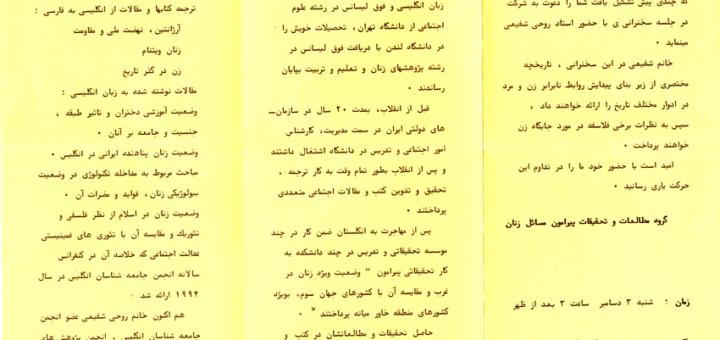 که چندی پیش تشکیل یافت شما را دعوت به شرکت
در جلسه سخنرانی ی با حضور استاد روحی شفیعی
مینماید .
خانم شفیعی در این سخنرانی ، تاریخچه
مختصری از زیر بنای پیدایش روابط نابرابر زن و مرد
در ادوار مختلف تاریخ را ارائه خواهند داد ،
سپس به نظرات برخی فلاسفه در مورد جایگاه زن
خواهند پرداخت .
امید است با حضور خود ما را در تداوم این
حرکت یاری رسانید .
گروه مطالعات و تحقیقات پیرامون مسائل زنان
زمان : شنبه ۳ دسامبر ساعت ۳ بعد از ظهر
زبان انگلیسی و فوق لیسانس در رشته علوم
اجتماعی از دانشگاه تهران، تحصیلات خویش را
در دانشگاه لندن با دریافت فوق لیسانس در
رشته پژوهشهای زنان و تعلیم و تربیت بپایان
رساندند .
قبل از انقلاب، بمدت ۲۰ سال در سازمان_
های دولتی ایران در سمت مدیریت، کارشناس
امور اجتماعی و تدریس در دانشگاه اشتغال داشتند
و پس از انقلاب بطور تمام وقت به کار ترجمه ،
تحقیق و تدوین کتب و مقالات اجتماعی متعددی
پرداختند .
پس از مهاجرت به انگلستان ضمن کار در چند
موسسه تحقیقاتی و تدریس در چند دانشکده به
کار تحقیقاتی پیرامون " وضعیت ویژه زنان در
غرب و مقایسه آن با کشورهای جهان سوم، بویژه
کشورهای منطقه خاور میانه پرداختند " .
حاصل تحقیقات و مطالعاتشان در کتب و
ترجمه کتابها و مقالات از انگلیسی به فارسی :
آرژانتین ، نهضت ملی و مقاومت
زنان ویتنام
زن در گذر تاریخ
مقالات نوشته شده به زبان انگلیسی :
وضعیت آموزشی دختران و تاثیر طبقه ،
جنسیت و جامعه بر آنان .
وضعیت زنان پناهنده ایرانی در انگلیس .
مباحث مربوط به مداخله تکنولوژی در وضعیت
بیولوژیکی زنان، فواید و مضرات آن .
وضعیت زنان در اسلام از نظر فلسفی و
تئوریک و مقایسه آن با تئوری های فمینیستی
عدالت اجتماعی که خلاصه آن در کنفرانس
سالانه انجمن جامعه شناسان انگلیس در سال
۱۹۹۴ ارائه شد .
هم اکنون خانم روحی شفیعی عضو انجمن
جامعه شناسان انگلیس ، انجمن پژوهش های